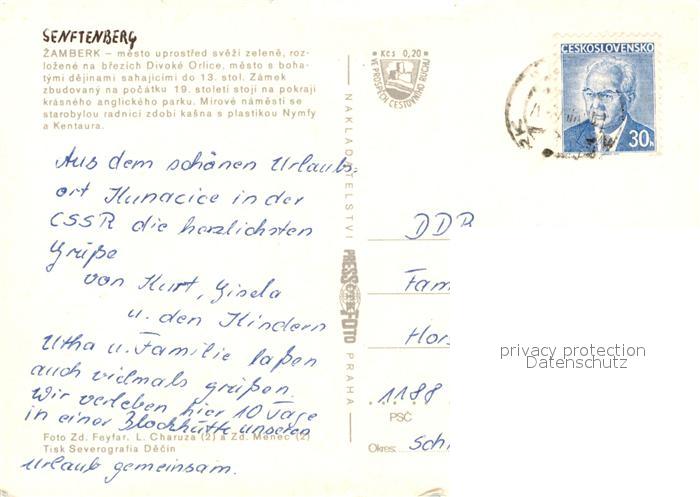 SENFTENBERG
ŽAMBERK – město uprostřed svěží zeleně, roz-
ložené na březích Divoké Orlice, město s boha-
tými dějinami sahajícími do 13. stol. Zámek
zbudovaný na počátku 19. století stojí na pokraji
krásného anglického parku. Mírové náměstí se
starobylou radnicí zdobí kašna s plastikou Nymfy
a Kentaura.
Aus dem schönen Urlaubs-
ort Kunacice in der
CSSR die herzlichsten
Grüße
von Kurt, Gisela
u. den Kindern
Utha u. Familie laßen
auch vielmals grüßen.
Wir verleben hier 10 Tage
in einer Blockhütte unseren
Foto Zd. Feyfar, L. Charuza (2) a Zd. Menec (2)
Tisk Severografia Děčín
Urlaub gemeinsam.
NAKLADATELSTVÍ
PRESSFOTO
PRAHA
Kčs 0,20
VE PROSPĚCH CESTOVNÍHO RUCHU
ČESKOSLOVENSKO
30h
DDR
Fam
Hors
1188
PSČ
Okres:
Sch
privacy protection
Datenschutz